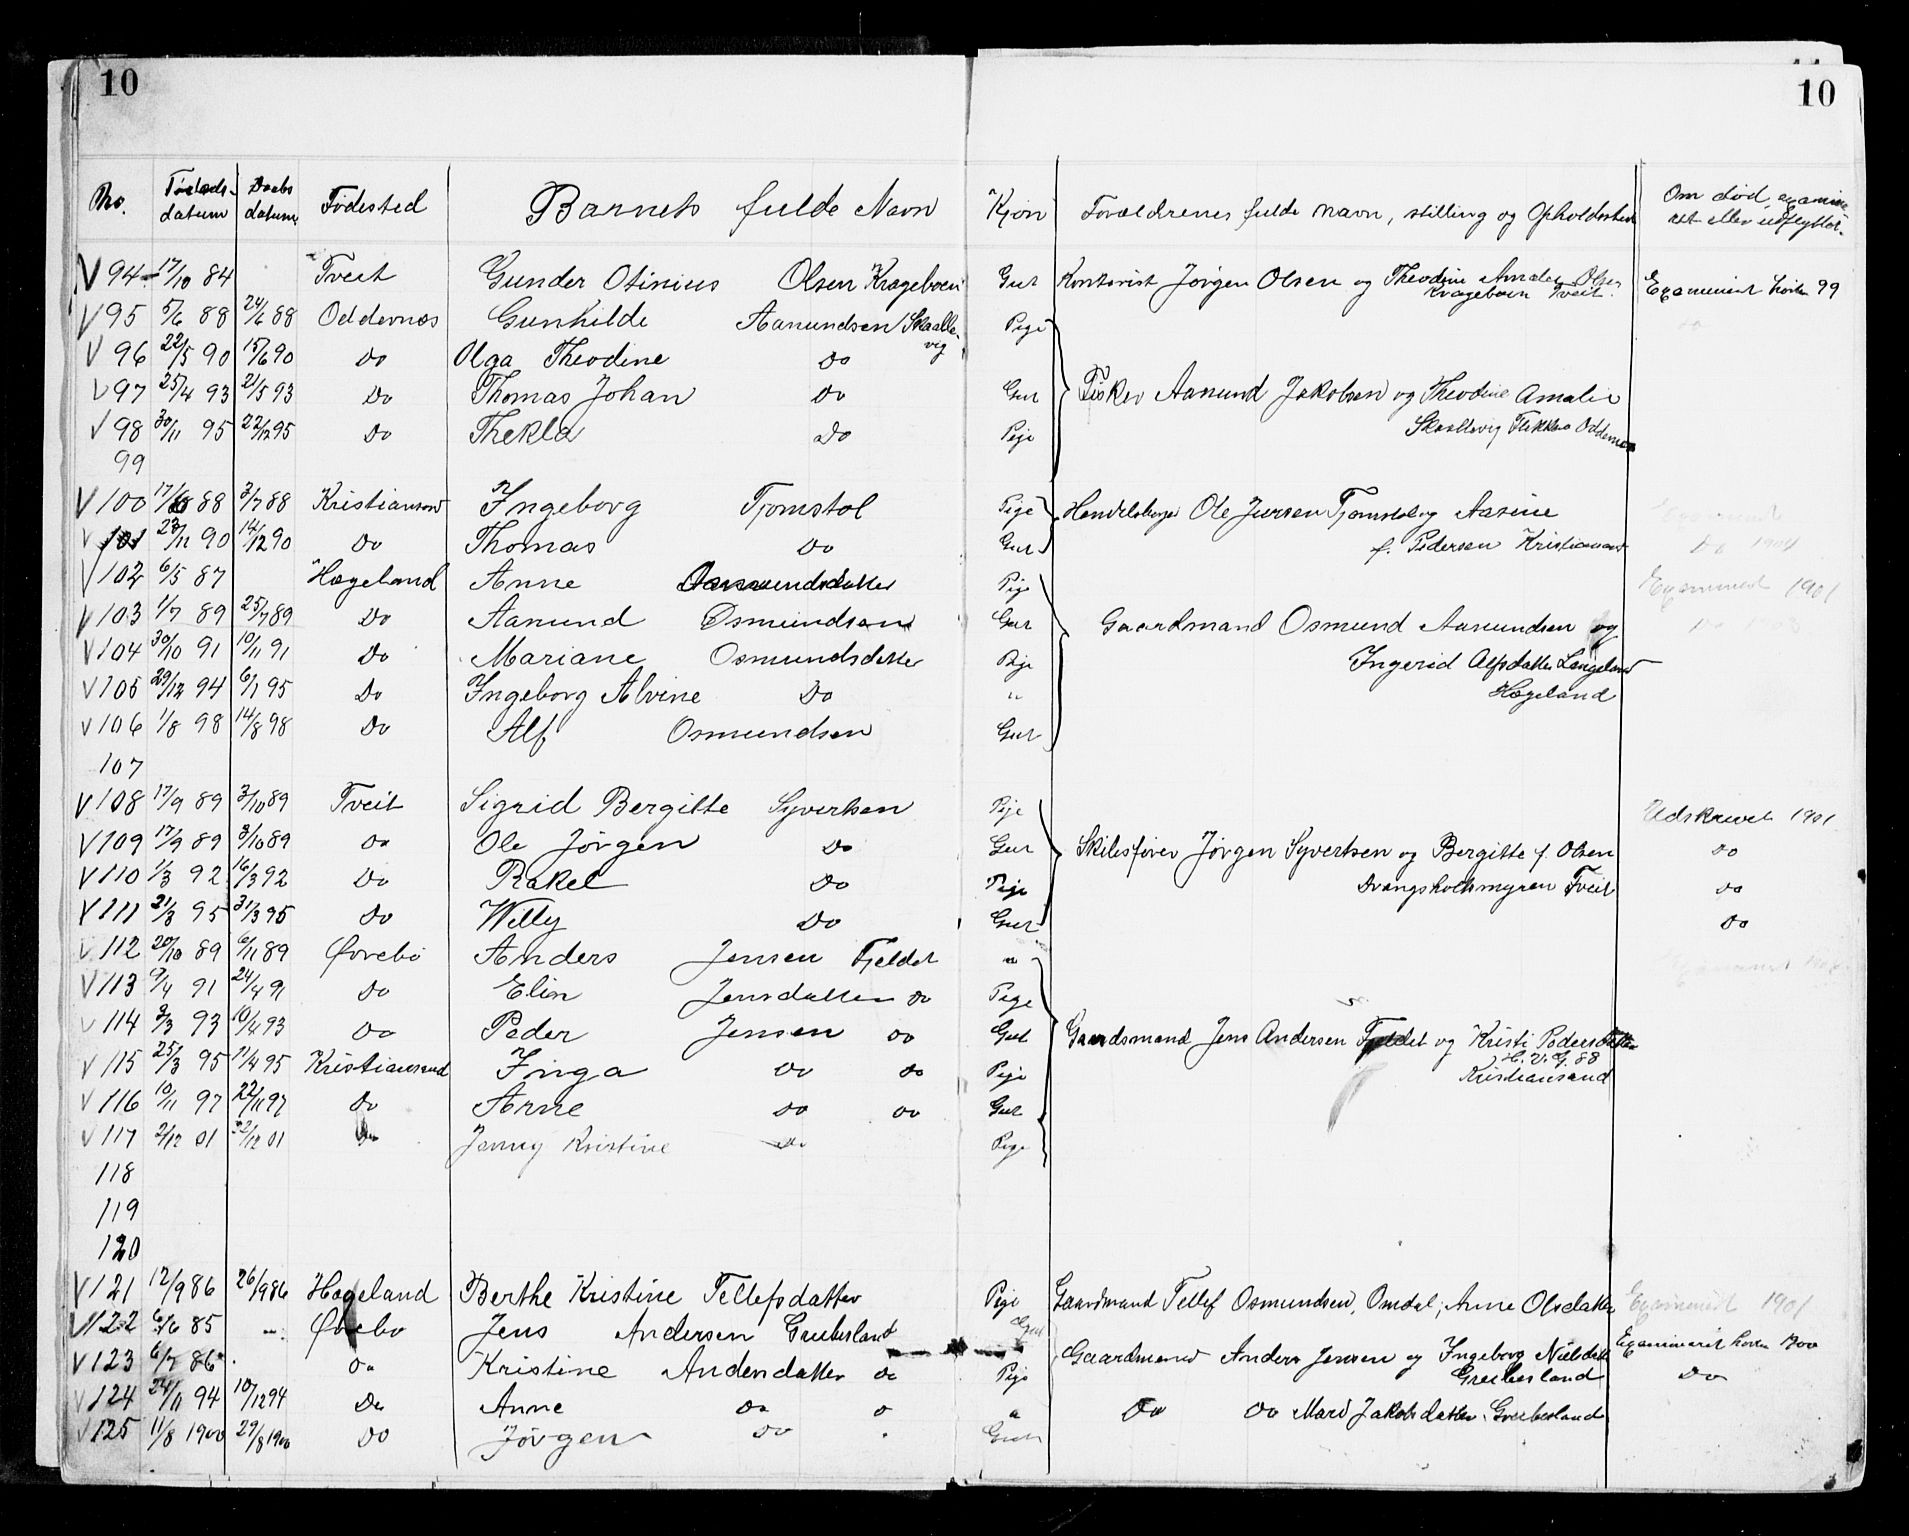 10 10
No. Fødsels-datum Daabs datum Fødested Barnets fulde Navn Kjøn Forældrenes fulde navn, stilling og Opholdssted Om død, examineret eller udflyttet.
V 94 17/10 84 Tveit Gunder Otinius Olsen Krageboen Gut Kontorist Jørgen Olsen og Theodine Amalie Olsen Examineret høsten 99
Krageboen Tveit.
V 95 5/6 88 24/6 88 Oddernæs Gunhilde Aanundsen Skaallevig Pige do
V 96 22/5 90 15/6 90 Do Olga Theodine Do
V 97 25/4 93 21/5 93 Do Thomas Johan Do Gut Fisker Aanund Jakobsen og Theodine Amalie
V 98 30/11 95 22/12 95 Do Thekla Do Pige Skaallevig Flekkerø Oddernæs
99
V 100 17/6 88 3/7 88 Kristiansand Ingeborg Tjomstøl Pige Handelsborger Ole Jursen Tjomstøl og Aasine
V 101 23/11 90 14/12 90 Do Thomas Do Gut f. Pedersen Kristiansand Do 1904
V 102 6/5 87 Hægeland Anne Osmundsdatter Pige Examineret 1901
V 103 1/7 89 25/7 89 Do Aanund Osmundsen Gut Gaardmand Osmund Aanundsen og Do
V 104 30/10 91 10/11 91 Do Mariane Osmundsdatter Pige Ingerid Alfsdatter Langeland
V 105 29/12 94 6/1 95 Do Ingeborg Alvine Do " Hægeland
V 106 1/8 98 14/8 98 Do Alf Osmundsen Gut
107
V 108 17/9 89 3/10 89 Tveit Sigrid Bergitte Syvertsen Pige Udskrevet 1901
V 109 17/9 89 3/10 89 Do Ole Jørgen Do Gut Skibsfører Jørgen Syvertsen og Bergitte f. Olsen Do
V 110 1/3 92 16/3 92 Do Rakel Do Pige Drangsholtmyren Tveit Do
V 111 21/3 95 31/3 95 Do Willy Do Gut Do
V 112 20/10 89 6/11 89 Øvrebø Anders Jensen Fjeldet "
V 113 9/4 91 24/4 91 Do Elin Jensdatter do Pige
V 114 9/3 93 10/4 93 Do Peder Jensen do Gut Gaardsmand Jens Andersen Fjeldet og Kristi Pedersdatter
V 115 25/3 95 11/4 95 Kristiansand Inga Do do Pige H. V. G. 88
Kristiansand
V 116 10/11 97 22/11 97 Do Arne Do Do Gut
V 117 2/12 01 22/12 01 Do Jenny Kristine Do Pige
118
119
120
V 121 12/9 86 26/9 86 Hægeland Berthe Kristine Tellefsdatter Pige Gaardmand Tellef Osmundsen, Omdal, Anne Olsdatter Examineret 1901
V 122 6/6 85 Øvrebø Jens Andersen Greibesland Gut
V 123 6/7 86 Do Kristine Andersdatter do Pige Gaardmand Anders Jensen og Ingeborg Nielsdatter Examineret høsten 1900
Greibesland Do
V 124 24/11 94 10/12 94 Do Anne Do o " Do Do Mari Jakobsdatter Greibesland
V 125 11/8 1900 29/8 1900 Do Jørgen Do . Gut